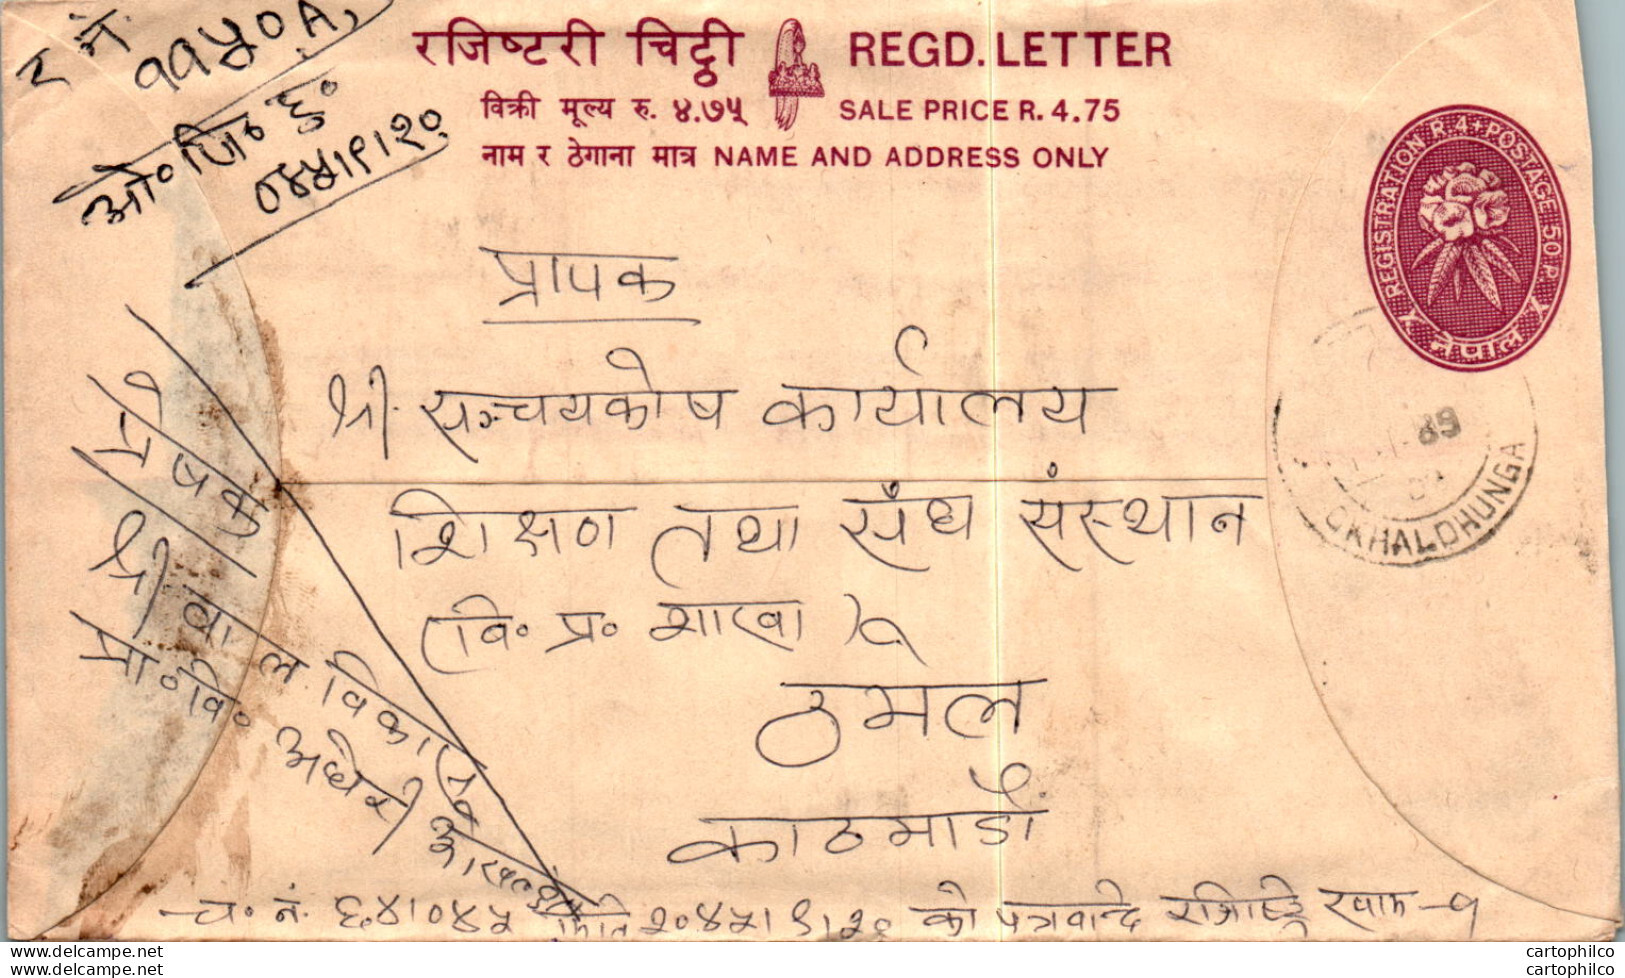 र नं.
११५० A,
ओ॰ जि॰ ढुं॰
०४५।९।२९
रजिष्टरी चिट्ठी REGD. LETTER
विक्री मूल्य रु. ४.७५ SALE PRICE R. 4.75
नाम र ठेगाना मात्र NAME AND ADDRESS ONLY
REGISTRATION R.4+POSTAGE 50 P.
नेपाल
OKHALDHUNGA
89
प्रापक
श्री सञ्चयकोष कार्यालय
शिक्षण तथा संघ संस्थान
(वि॰ प्र॰ शाखा)
ठमेल
काठमाडौं
प्रेषक
श्री बाल विकास
प्रा॰ वि॰ अधेरी
च. नं. ६४।०४५ मिति २०४५।९।२९ को पत्रबाट रजिष्ट्रि खाम -१
cartophilco
cartophilco
cartophilco
cartophilco